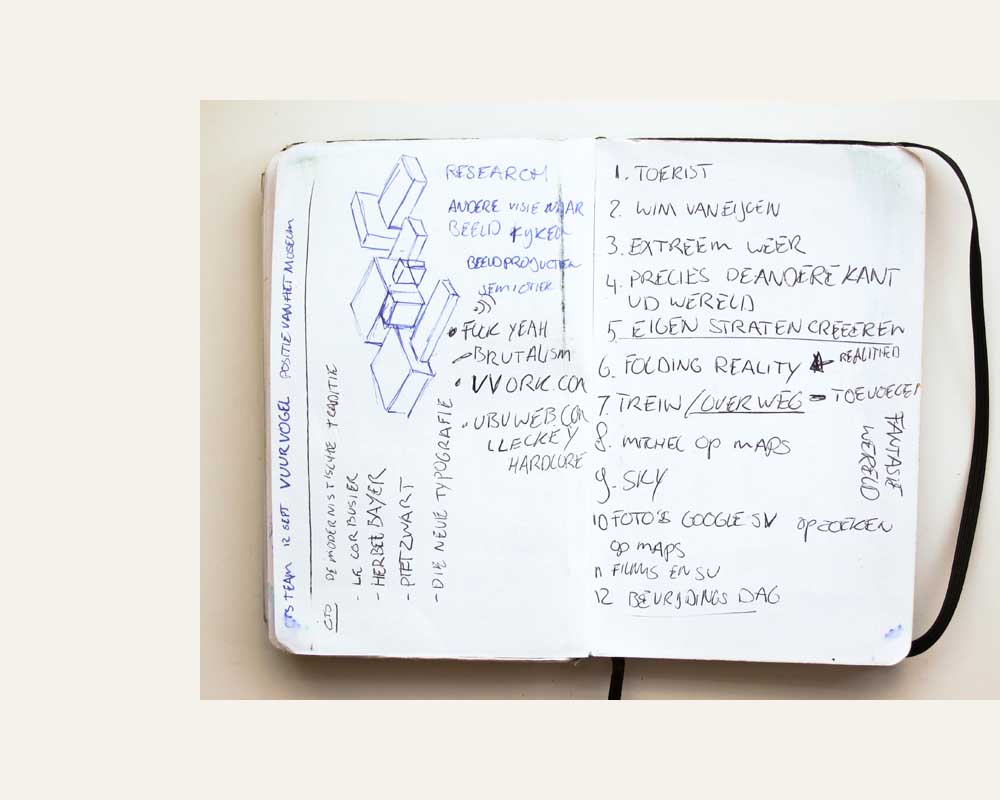 GTS TEAM 12 SEPT VUURVOGEL POSITIE VAN HET MUSEUM
GTS DE MODERNISTISCHE TRADITIE
- LE CORBUSIER
- HERBERT BAYER
- PIET ZWART
- DIE NEUE TYPOGRAFIE
RESEARCH
ANDERE VISIE NAAR
BEELD KYKEN
BEELDPRODUCTIEN
SEMIOTIEK
• FUCK YEAH
BRUTALISM
• VVORK.COM
• UBUWEB.COM
LLECKEY
HARDCORE
1. TOERIST
2. WIM VAN EIJCEN
3. EXTREEM WEER
4. PRECIES DE ANDERE KANT
VD WERELD
5. EIGEN STRATEN CREEEREN
6. FOLDING REALITY REALITIED
7. TREIN / OVERWEG = TOEVOEGEN
FANTASIE
WERELD
8. MICHEL OP MAPS
9. SKY
10 FOTO'S GOOGLE SV OPZOEKEN
OP MAPS
11 FILMS EN SV
12 BEVRIJDINGS DAG